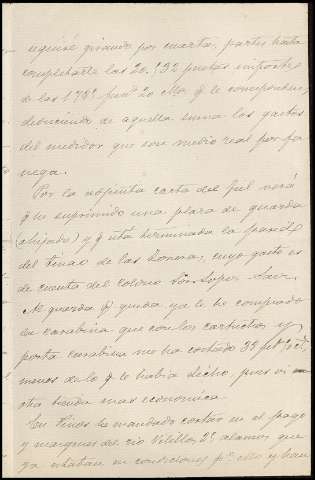 seguiré girando por cuartas partes hasta
completarle las 20.132 pesetas importe
de las 178 fan.s 20 q.e le corresponden,
deduciendo de aquella suma los gastos
del medidor que son medio real por fa
nega.
Por la adjunta carta del Fiel verá
q.e he suprimido una plaza de guarda
(ahijado) y q.e está terminada la pared
del tinao de las Zorreras, cuyo gasto es
de cuenta del colono López
Al guarda q.e queda ya le he comprado
la carabina que con los cartuchos y
porta carabina me ha costado 33
menos de lo q.e le había dicho, pues vi en
otra tienda mas economica.
En Tiños he mandado cortar en el pago
y margenes del rio 2 alamos que
ya estaban en condiciones p.a ello y han